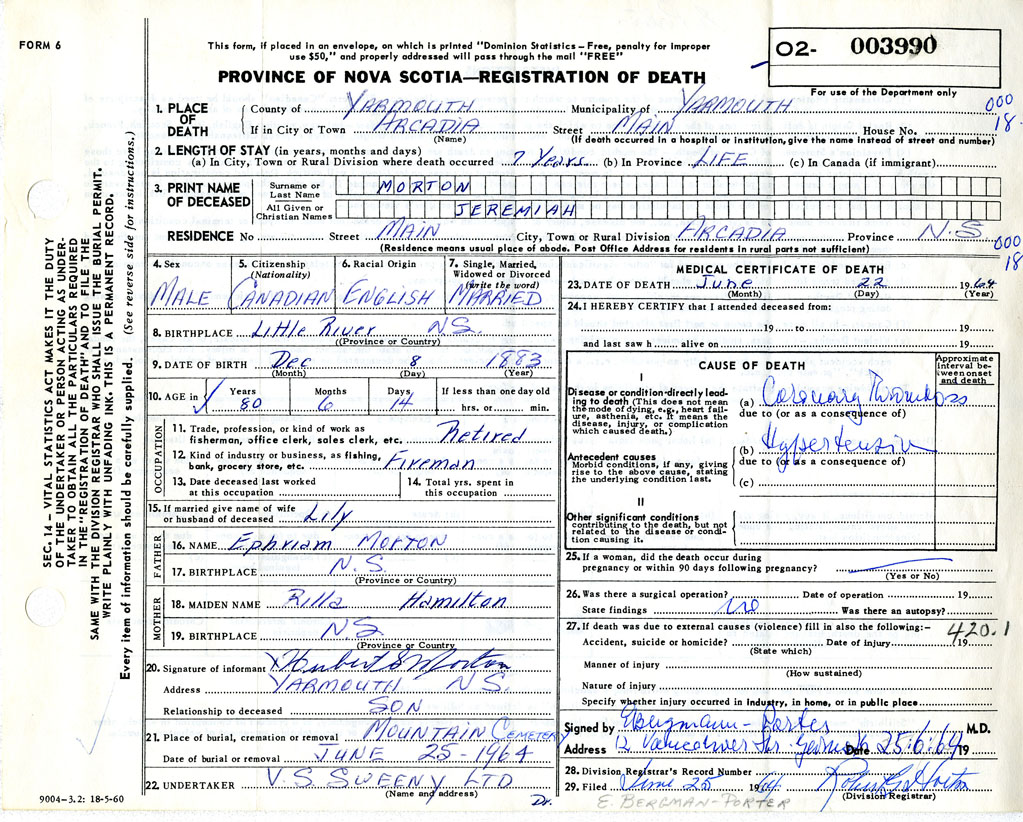 FORM 6
This form, if placed in an envelope, on which is printed "Dominion Statistics – Free, penalty for improper
use $50," and properly addressed will pass through the mail "FREE"
02- 003990
For use of the Department only
PROVINCE OF NOVA SCOTIA—REGISTRATION OF DEATH
000
18
1. PLACE OF DEATH County of YARMOUTH Municipality of YARMOUTH
If in City or Town ARCADIA Street MAIN House No.
(Name) (If death occurred in a hospital or institution, give the name instead of street and number)
2. LENGTH OF STAY (in years, months and days)
(a) In City, Town or Rural Division where death occurred 7 Years (b) In Province LIFE (c) In Canada (if immigrant)
3. PRINT NAME OF DECEASED Surname or Last Name MORTON
All Given or Christian Names JEREMIAH
RESIDENCE No Street MAIN City, Town or Rural Division ARCADIA Province N.S.
(Residence means usual place of abode. Post Office Address for residents in rural parts not sufficient)
000
18
4. Sex 5. Citizenship (Nationality) 6. Racial Origin 7. Single, Married, Widowed or Divorced (write the word)
MALE CANADIAN ENGLISH MARRIED
8. BIRTHPLACE Little River NS.
(Province or Country)
9. DATE OF BIRTH Dec 8 1883
(Month) (Day) (Year)
10. AGE in Years Months Days If less than one day old
80 6 14 hrs. or min.
OCCUPATION
11. Trade, profession, or kind of work as
fisherman, office clerk, sales clerk, etc. Retired
12. Kind of industry or business, as fishing,
bank, grocery store, etc. Fireman
13. Date deceased last worked at this occupation 14. Total yrs. spent in this occupation
15. If married give name of wife
or husband of deceased Lily
FATHER
16. NAME Ephriam Morton
17. BIRTHPLACE N.S.
(Province or Country)
MOTHER
18. MAIDEN NAME Rilla Hamilton
19. BIRTHPLACE NS
(Province or Country)
20. Signature of informant X Hubert S Morton
Address YARMOUTH NS.
Relationship to deceased SON
21. Place of burial, cremation or removal MOUNTAIN CEMETERY
Date of burial or removal JUNE 25-1964
22. UNDERTAKER V.S. SWEENY LTD
(Name and address)
9004-3.2: 18-5-60
Dr.
E. BERGMAN-PORTER
MEDICAL CERTIFICATE OF DEATH
23. DATE OF DEATH June 22 1964
(Month) (Day) (Year)
24. I HEREBY CERTIFY that I attended deceased from:
19 to 19
and last saw h alive on 19
CAUSE OF DEATH
Approximate interval between onset and death
I
Disease or condition directly leading to death (This does not mean the mode of dying, e.g., heart failure, asthenia, etc. It means the disease, injury, or complication which caused death.)
(a) Coronary Thrombosis
due to (or as a consequence of)
Antecedent causes
Morbid conditions, if any, giving rise to the above cause, stating the underlying condition last.
(b) Hypertension
due to (or as a consequence of)
(c)
II
Other significant conditions
contributing to the death, but not related to the disease or condition causing it.
25. If a woman, did the death occur during
pregnancy or within 90 days following pregnancy?
(Yes or No)
26. Was there a surgical operation? Date of operation 19
State findings no Was there an autopsy?
27. If death was due to external causes (violence) fill in also the following:–
420.1
Accident, suicide or homicide? Date of injury 19
(State which)
Manner of injury
(How sustained)
Nature of injury
Specify whether injury occurred in Industry, in home, or in public place
Signed by EBergmann-Porter M.D.
Address 12 Vancouver Str. Date 25:6:64 19
28. Division Registrar's Record Number
29. Filed June 25 1964
(Division Registrar)
SEC. 14 – VITAL STATISTICS ACT MAKES IT THE DUTY
OF THE UNDERTAKER OR PERSON ACTING AS UNDER-
TAKER TO OBTAIN ALL THE PARTICULARS REQUIRED
IN THE "REGISTRATION OF DEATH" AND TO FILE THE
SAME WITH THE DIVISION REGISTRAR WHO SHALL ISSUE THE BURIAL PERMIT.
WRITE PLAINLY WITH UNFADING INK. THIS IS A PERMANENT RECORD.
Every item of information should be carefully supplied. (See reverse side for instructions.)